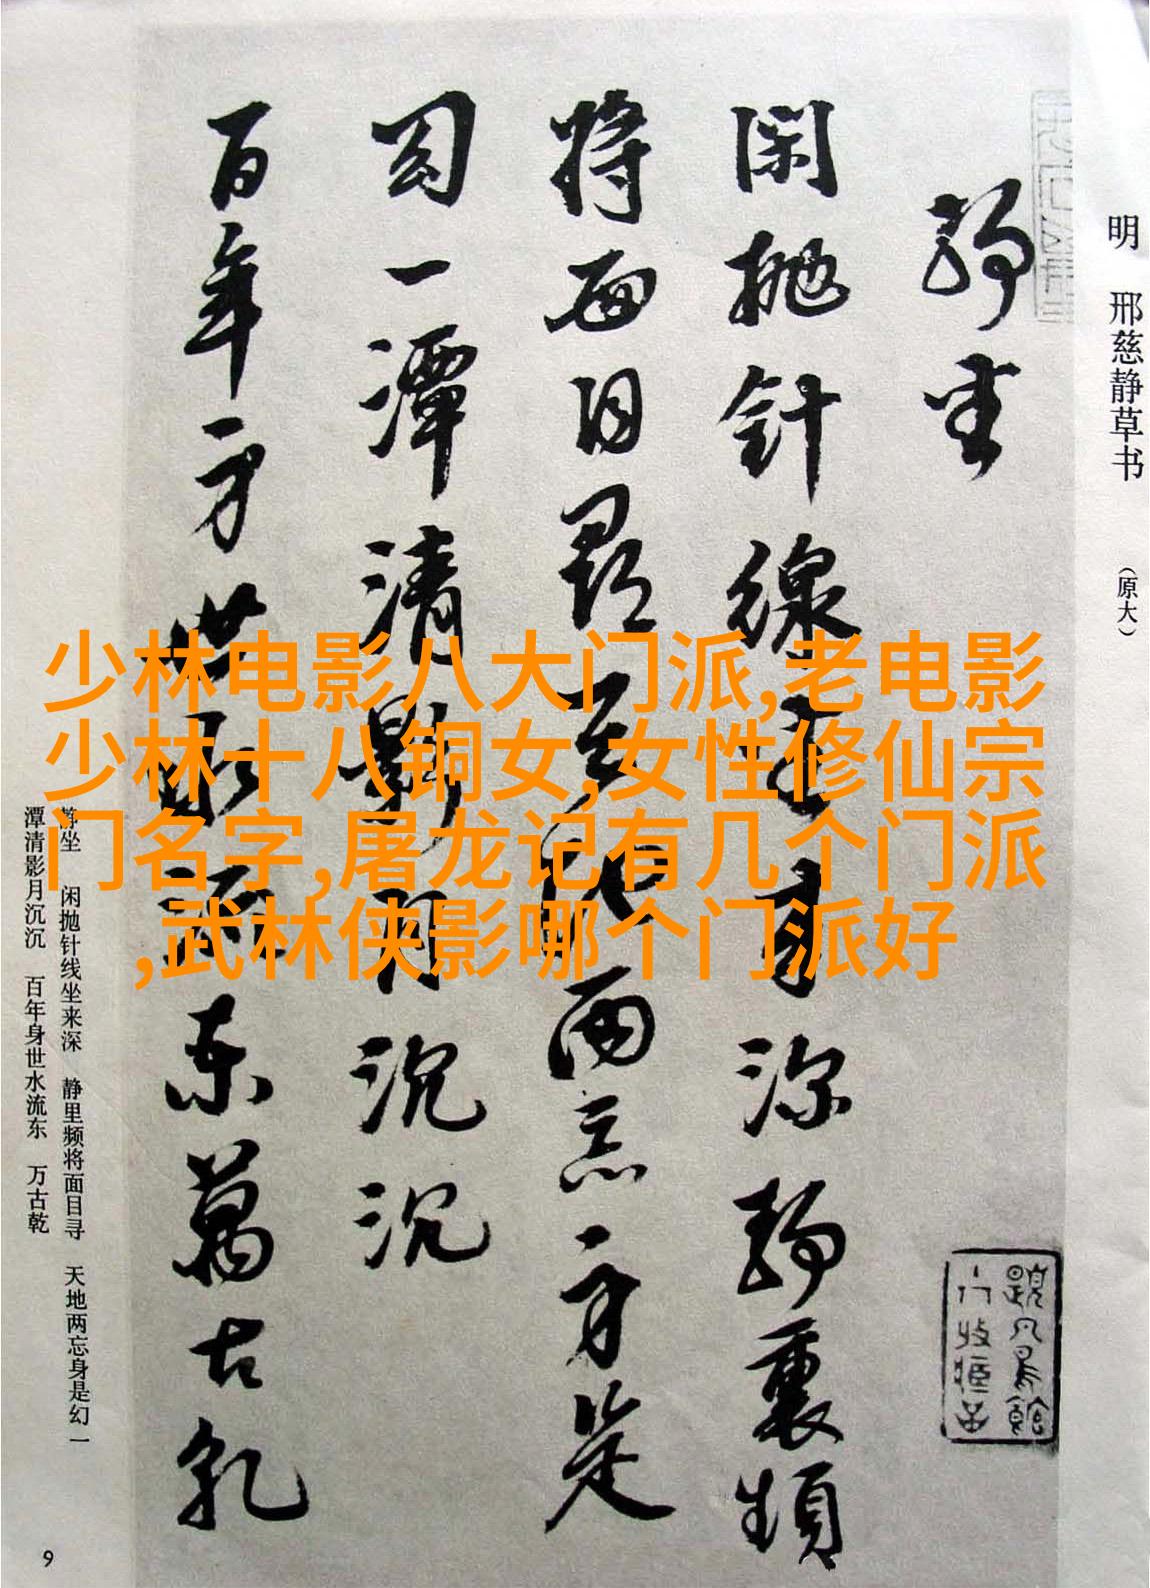 明 邢慈静草书 （原大）
靜坐
閑拋針線坐來深靜裏頻
將面目尋天地兩忘身是
幻一潭清影月沉沉
百年身世水流東萬古乾
静坐 闲抛针线坐来深 静里频将面目寻 天地两忘身是幻 一
潭清影月沉沉 百年身世水流东 万古乾
9
少林电影八大门派,老电影
少林十八铜女,女性修仙宗
门名字,屠龙记有几个门派
,武林侠影哪个门派好